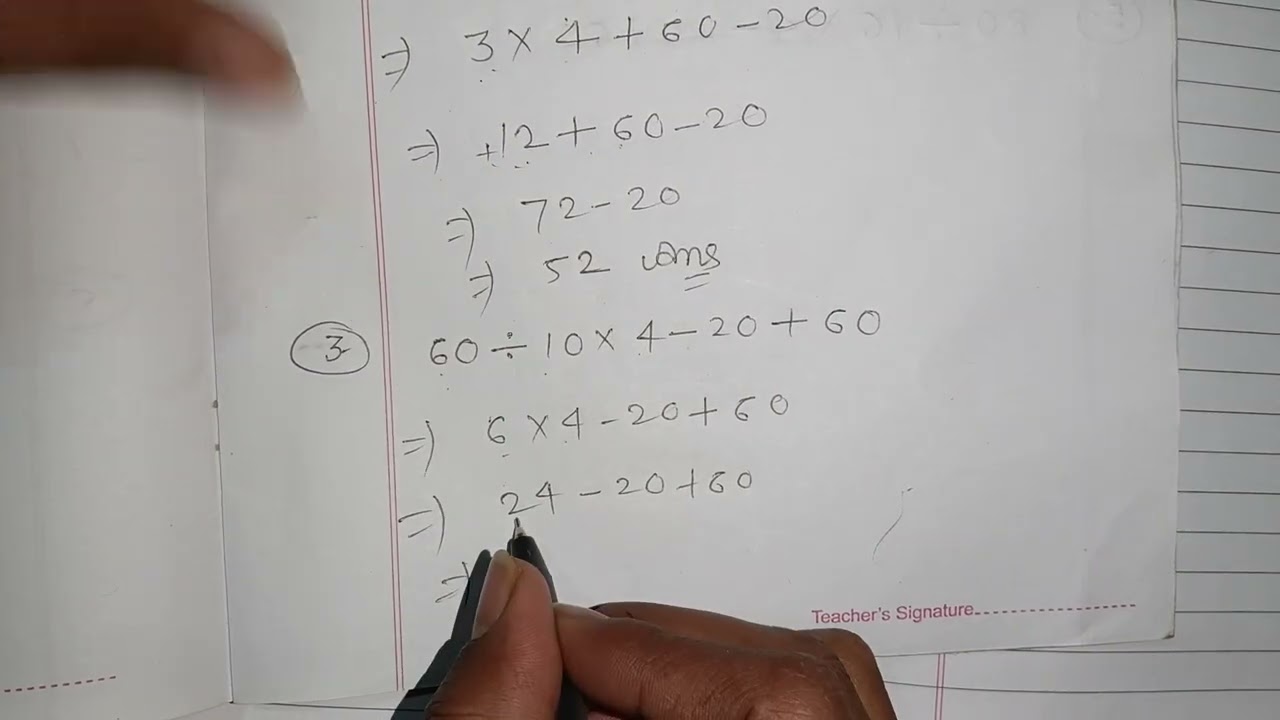 ⇒ 3 × 4 + 60 - 20
⇒ +12 + 60 - 20
⇒ 72 - 20
⇒ 52 Ans
③ 60 ÷ 10 × 4 - 20 + 60
⇒ 6 × 4 - 20 + 60
⇒ 24 - 20 + 60
⇒
Teacher's Signature